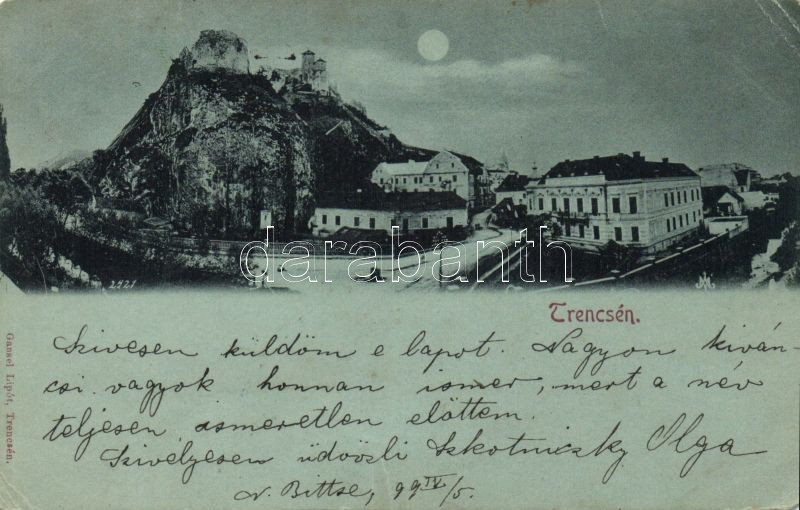 2421
darabanth
Trencsén.
Gansel Lipót, Trencsén.
Szivesen küldöm e lapot. Nagyon kiván-
csi vagyok honnan ismer, mert a név
teljesen ismeretlen előttem.
Szivélyesen üdvözli Szkotniczky Olga
N. Bittse, 99 IV/5.